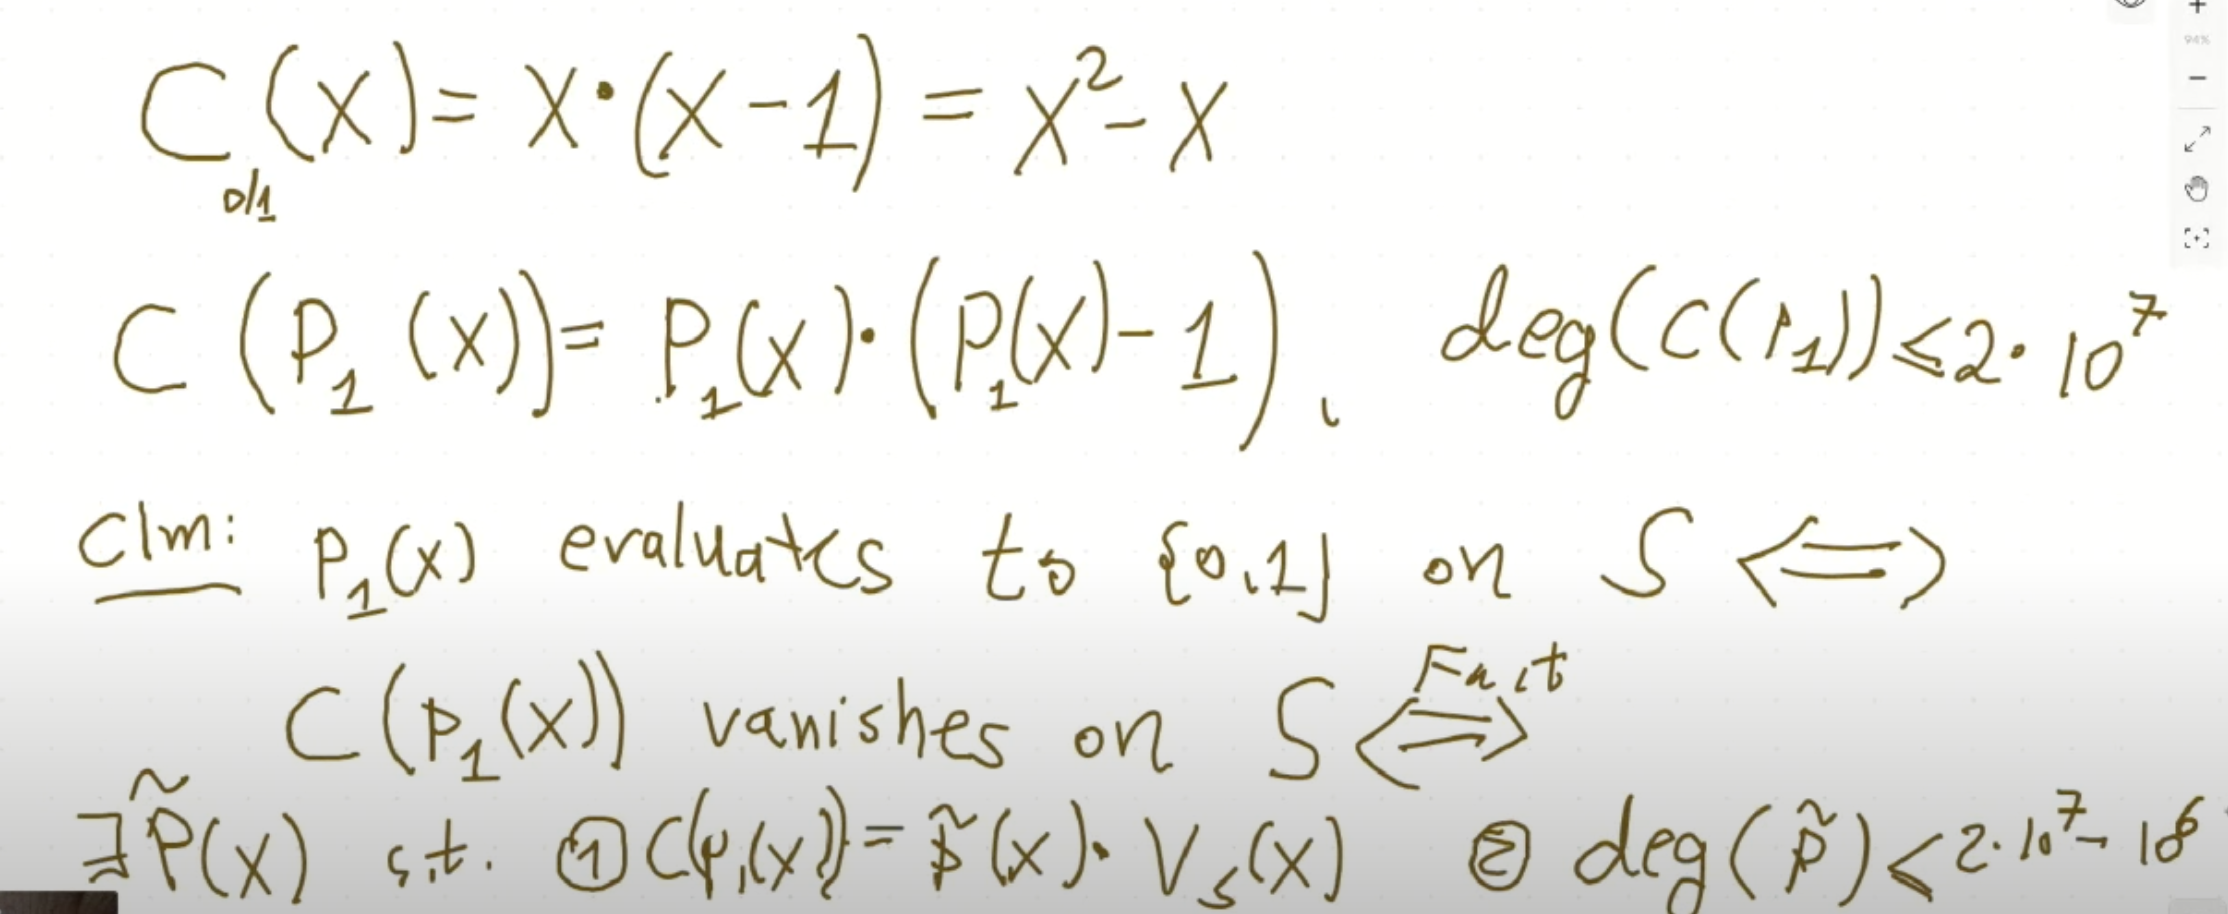 94%
C₀/₁(X) = X·(X-1) = X²-X
C(P₁(X)) = P₁(X)·(P₁(X)-1), deg(C(P₁)) ≤ 2·10⁷
Clm: P₁(X) evaluates to {0,1} on S ⟺
C(P₁(X)) vanishes on S ⟺ Fact
∃P̃(X) s.t. ① C(P₁(X)) = P̃(X)·V_S(X) ② deg(P̃) ≤ 2·10⁷-10⁶